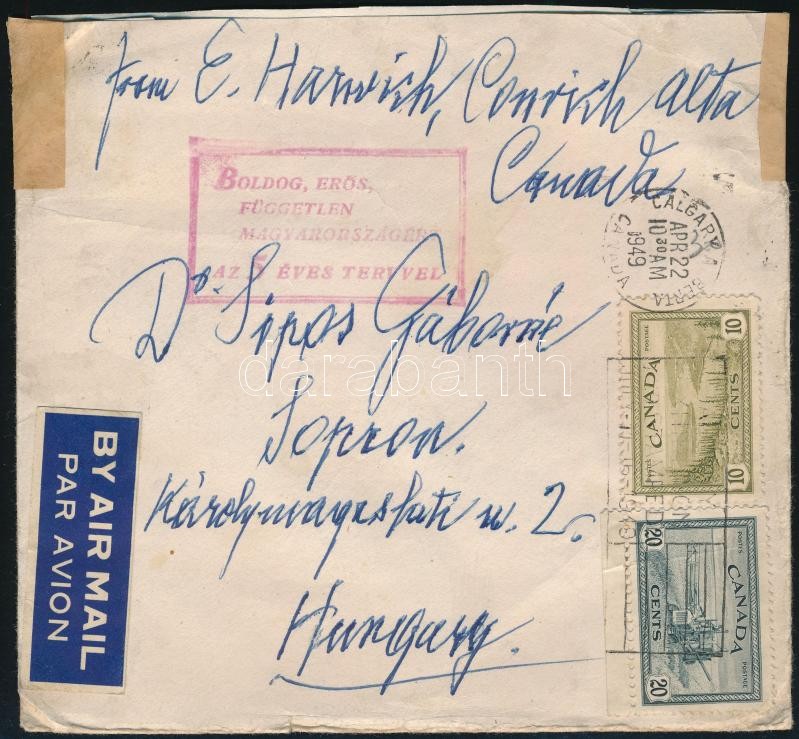 from E. Harwich, Conrich alta
Canada
BOLDOG, ERŐS,
FÜGGETLEN
MAGYARORSZÁGÉRT
AZ 5 ÉVES TERVVEL
CALGARY ALBERTA
APR 22
10 30 AM
1949
CANADA
Dr. Sipos Gáborné
Sopron.
Károlymagaslati u. 2.
Hungary.
BY AIR MAIL
PAR AVION
10
POSTAGE
CANADA
CENTS
10
20
POSTES
CANADA
CENTS
POSTAGE
20
darabanth